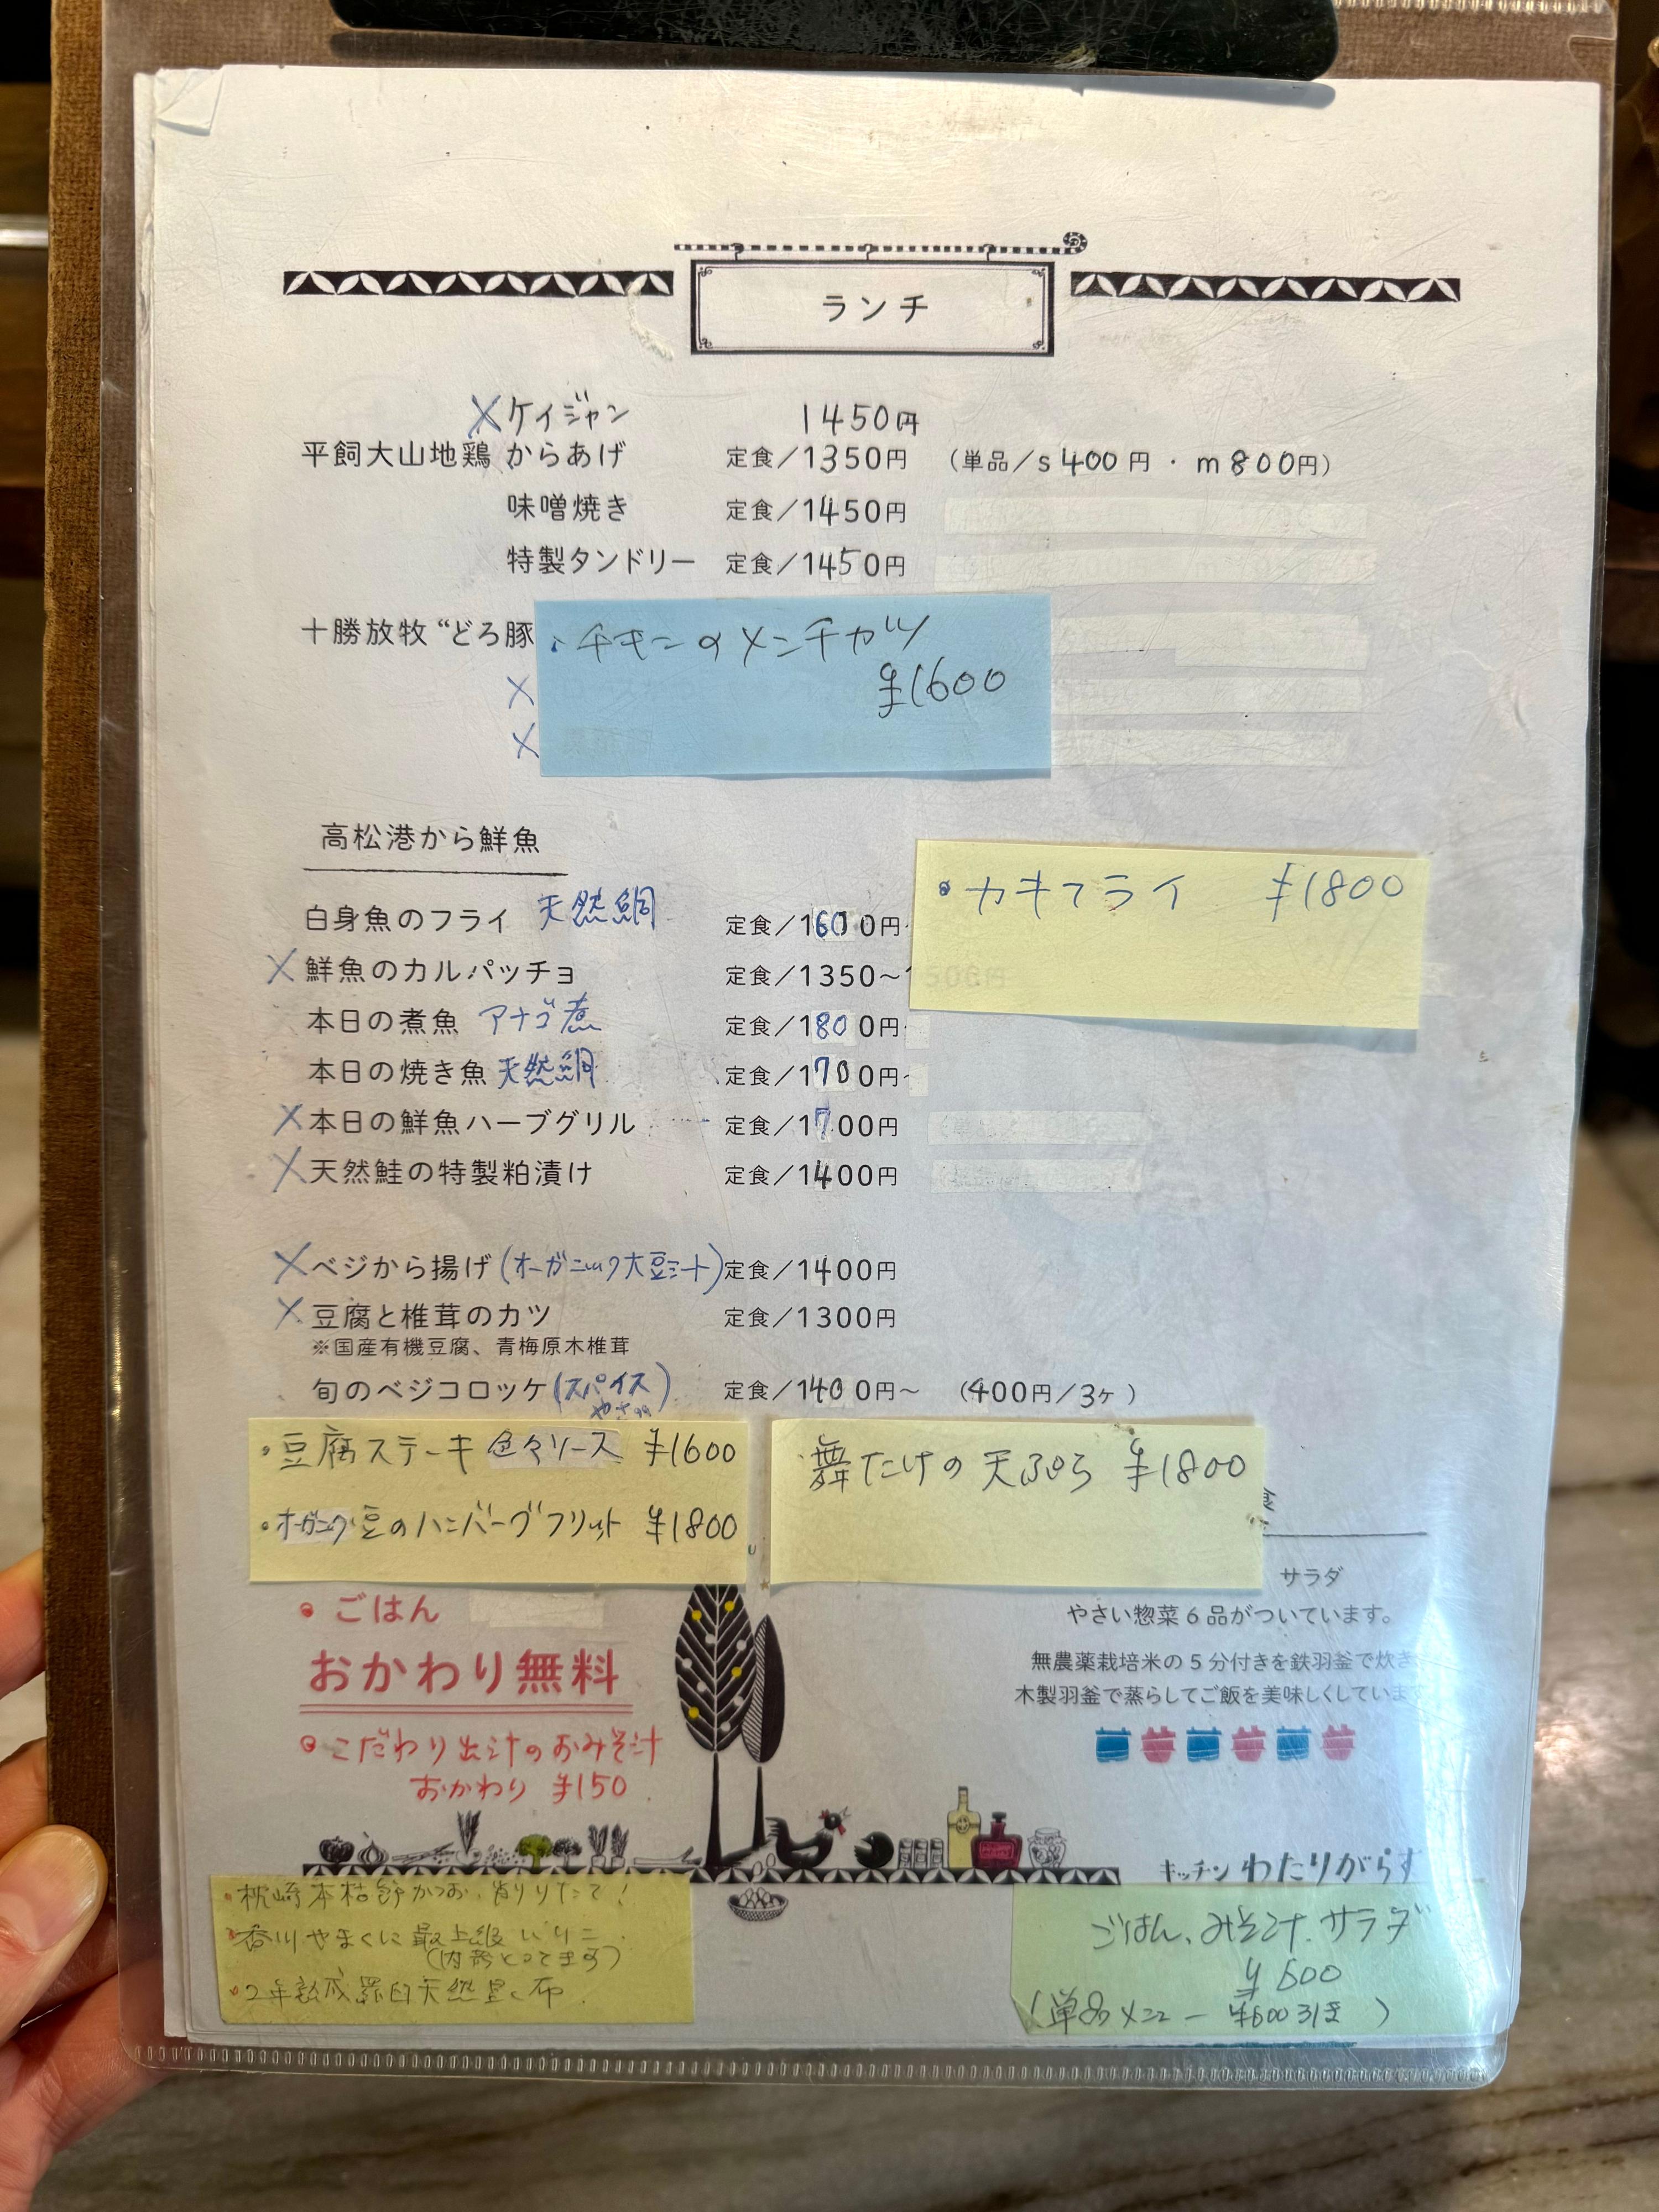 ランチ
×ケイジャン 1450円
平飼大山地鶏 からあげ 定食/1350円 (単品/s400円・m800円)
味噌焼き 定食/1450円
特製タンドリー 定食/1450円
十勝放牧“どろ豚
・チキンのメンチカツ
¥1600
×
×
高松港から鮮魚
・カキフライ ¥1800
白身魚のフライ 天然鯛 定食/1600円
×鮮魚のカルパッチョ 定食/1350〜1500円
本日の煮魚 アナゴ煮 定食/1800円
本日の焼き魚 天然鯛 定食/1700円
×本日の鮮魚ハーブグリル 定食/1700円
×天然鮭の特製粕漬け 定食/1400円
×ベジから揚げ(オーガニック大豆ミート) 定食/1400円
×豆腐と椎茸のカツ 定食/1300円
※国産有機豆腐、青梅原木椎茸
旬のベジコロッケ(スパイス) 定食/1400円〜 (400円/3ヶ)
・豆腐ステーキ 色々ソース ¥1600
・オーガニック豆のハンバーグフリット ¥1800
舞たけの天ぷら ¥1800
食
サラダ
やさい惣菜6品がついています。
無農薬栽培米の5分付きを鉄羽釜で炊き
木製羽釜で蒸らしてご飯を美味しくしています
ごはん
おかわり無料
こだわり出汁のおみそ汁
おかわり ¥150
キッチン わたりがらす
・枕崎本枯節かつお、削りたて!
・香川やまくに最上級いりこ
(内臓とってます)
・2年熟成羅臼天然昆布
ごはん、みそ汁、サラダ
¥600
(単品メニュー ¥600引き)